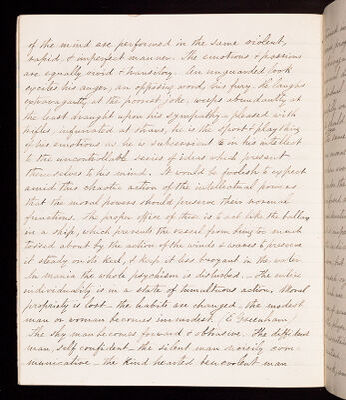 of the mind are performed in the same violent,
rapid, & imperfect manner. The emotions & passions
are equally vivid & transitory. An unguarded look
excites his anger, an opposing word, his fury. He laughs
extravagantly at the poorest joke, weeps abundantly at
the least draught upon his sympathy – pleased with
trifles, infuriated at straws, he is the sport & plaything
of his emotions as he is subservient to in his intellect
to the uncontrollable series of ideas which present
themselves to his mind. It would be foolish to expect
amid this chaotic action of the intellectual powers
that the moral powers should preserve their normal
functions. The proper office of these is to act like the ballast
in a ship, which prevents the vessel from being too much
tossed about by the action of the winds & waves to preserve
it steady on its keel, & keep it less buoyant in the water
In mania the whole psychism is disturbed. – The entire
individuality is in a state of tumultuous action, Moral
propriety is lost – the habits are changed, the modest
man or woman becomes immodest,
The shy man becomes forward & obtrusive. The diffident
man, self confident – the silent man noisily com-
municative – the kind hearted benevolent man